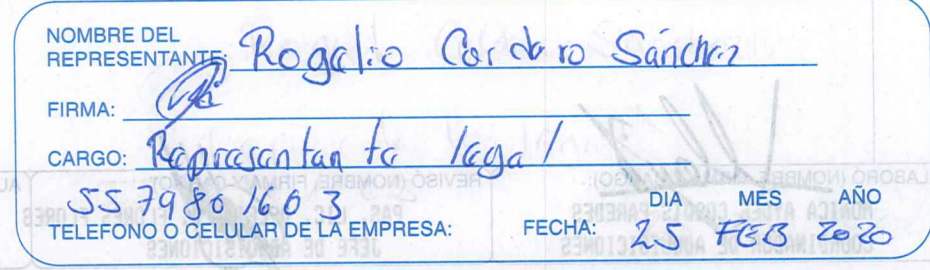 NOMBRE DEL
REPRESENTANTE: Rogelio Cordero Sánchez
FIRMA:
CARGO: Representante legal
5579801603
TELEFONO O CELULAR DE LA EMPRESA:
FECHA: DIA MES AÑO
25 FEB 2020